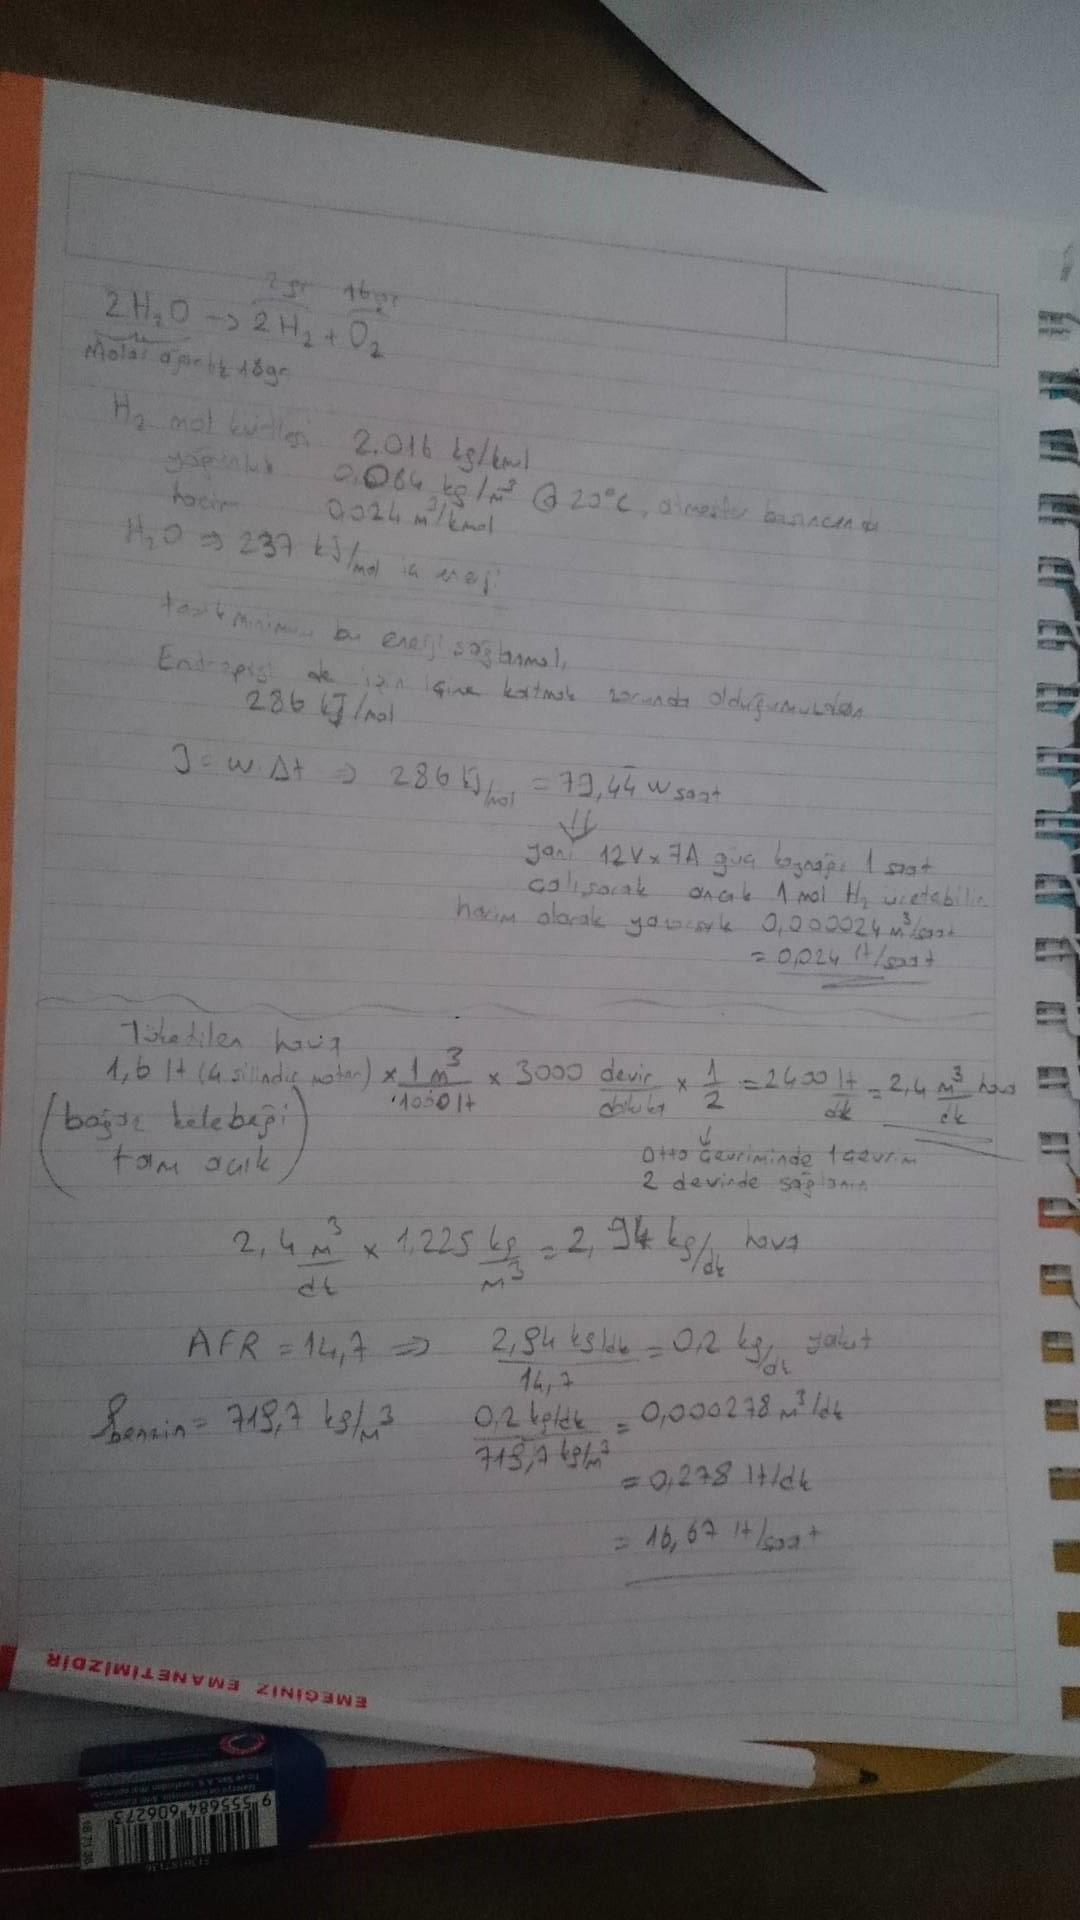 2gr 16gr
2H₂O → 2H₂ + O₂
Molar ağırlık 18gr
H₂ mol kütlesi 2.016 kg/kmol
yoğunluk 0,084 kg/m³ @ 20°C, atmosfer basıncında
hacim 0,024 m³/kmol
H₂O ⇒ 237 kJ/mol iç enerji
minimum bu enerji sağlanmalı,
Entropiyi de işin içine katmak zorunda olduğumuzdan
286 kJ/mol
J = W.Δt ⇒ 286 kJ/mol = 79,44 W saat
⇓
yani 12V x 7A güç kaynağı 1 saat
çalışarak ancak 1 mol H₂ üretebilir
hacim olarak yazarsak 0,000024 m³/saat
= 0,024 lt/saat
Tüketilen hava
1,6 lt (4 silindir motor) x 1m³/1000 lt x 3000 devir/dakika x 1/2 = 2400 lt/dk = 2,4 m³/dk hava
(boğaz kelebeği
tam açık)
↓
Otto çevriminde 1 çevrim
2 devirde sağlanır
2,4 m³/dk x 1,225 kg/m³ = 2,94 kg/dk hava
AFR = 14,7 ⇒ 2,94 kg/dk / 14,7 = 0,2 kg/dk yakıt
ρbenzin = 719,7 kg/m³ 0,2 kg/dk / 719,7 kg/m³ = 0,000278 m³/dk
= 0,278 lt/dk
= 16,67 lt/saat
EMEĞİNİZ EMANETİMİZDİR
9 555684 606273